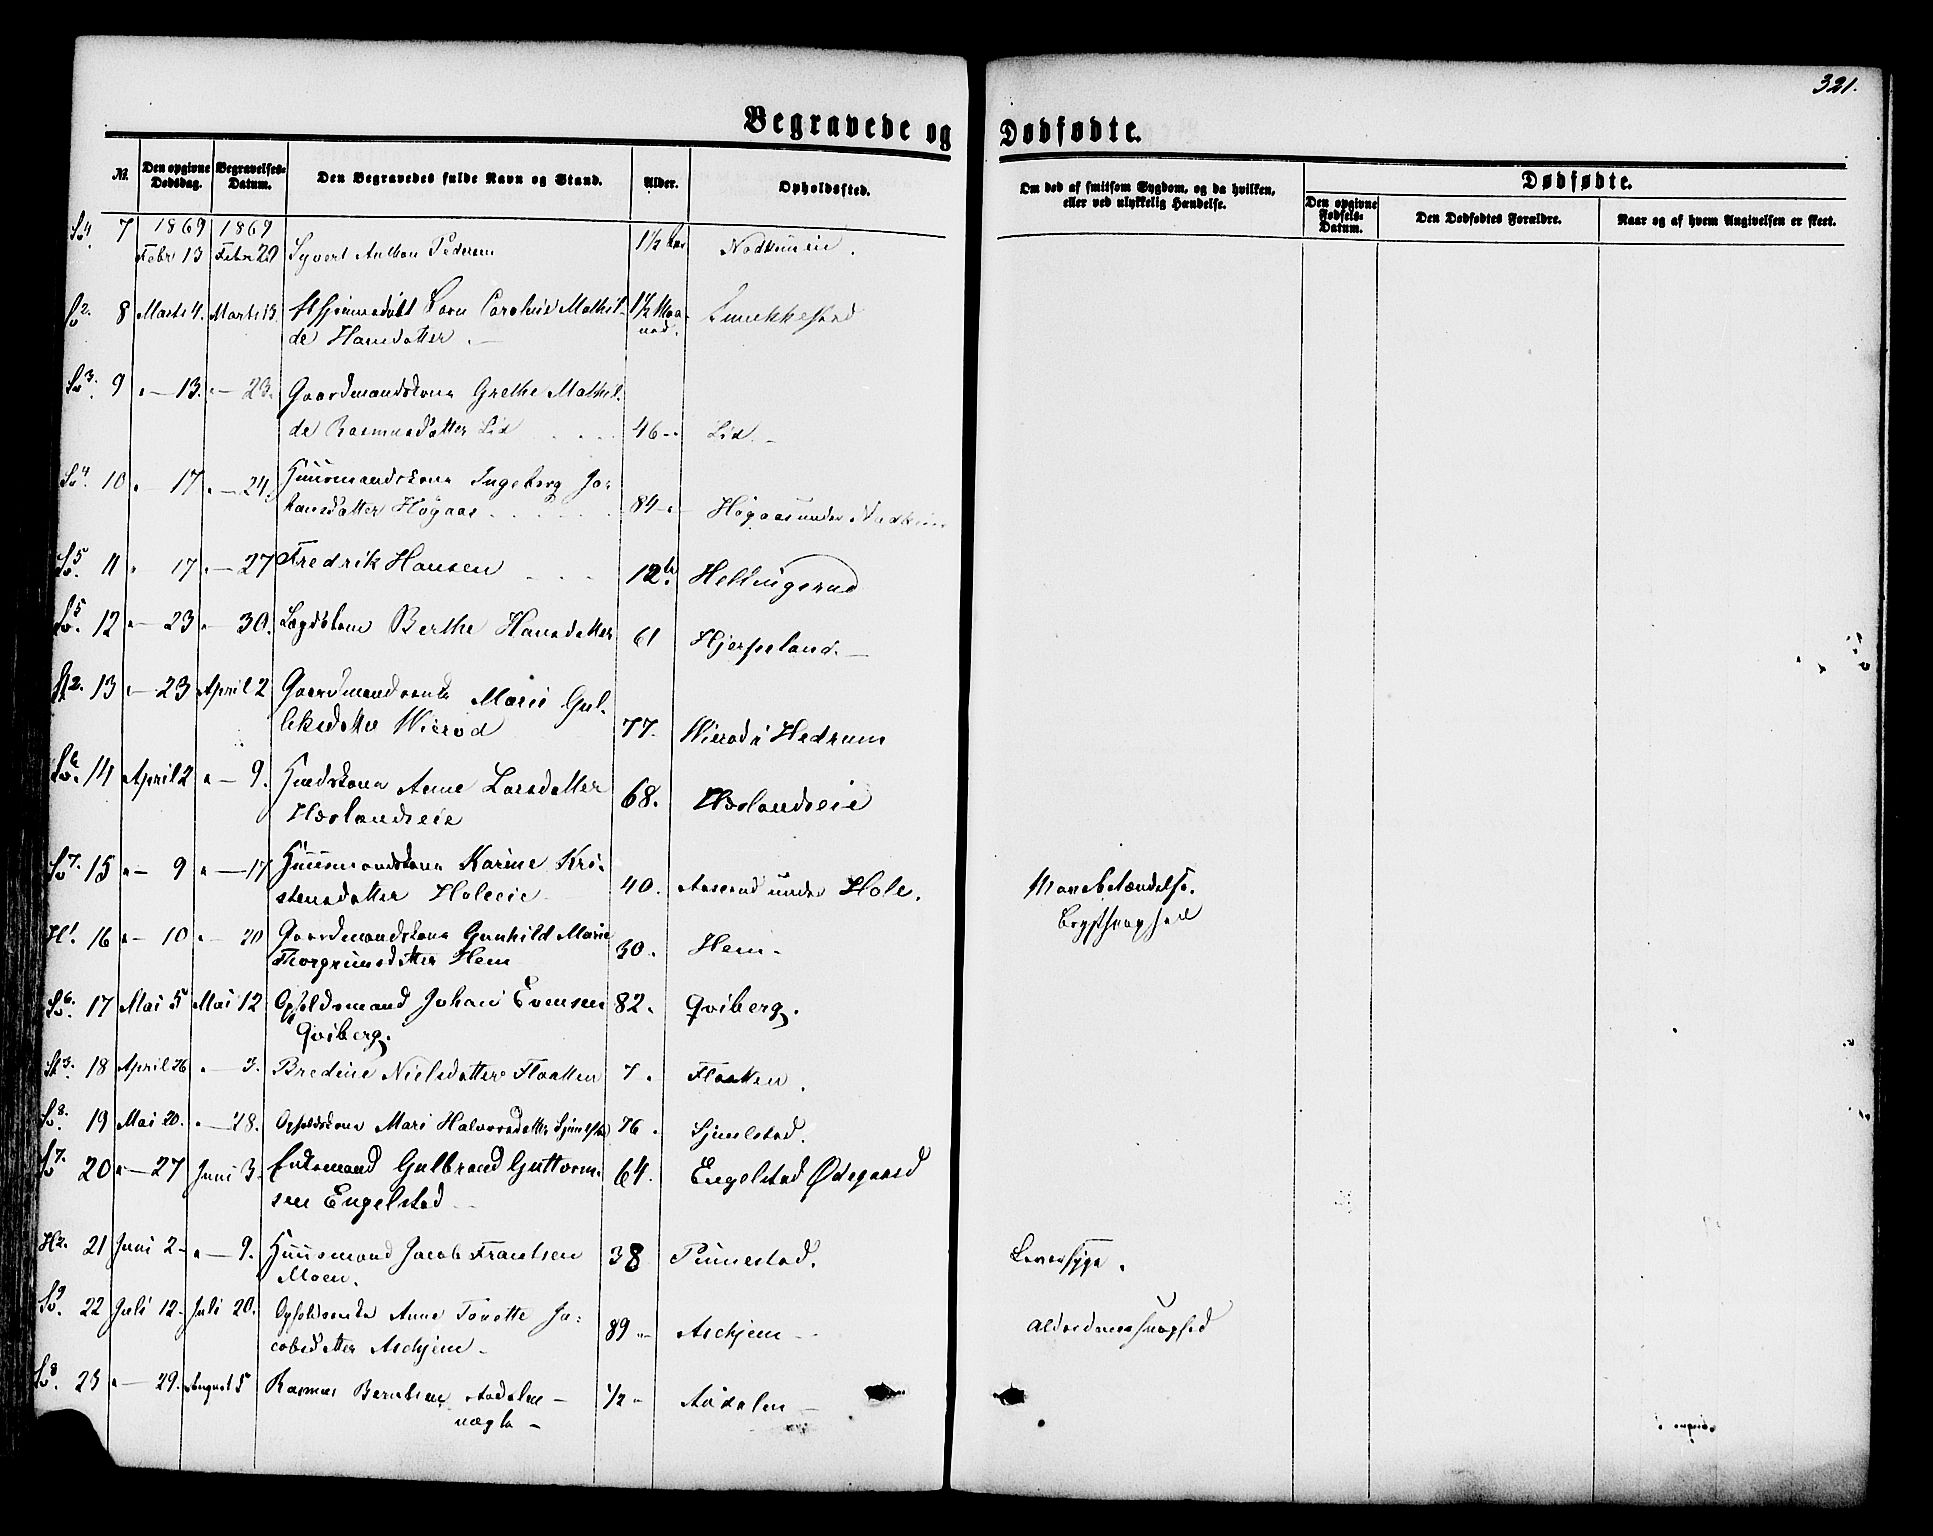 321.
Begravede og Dødfødte.
No. Den opgivne Dødsdag. Begravelses-Datum. Den Begravedes fulde Navn og Stand. Alder. Opholdssted. Om død af smitsom Sygdom, og da hvilken, eller ved ulykkelig Hændelse. Dødfødte.
Den opgivne Fødsels-Datum. Den Dødfødtes Forældre. Naar og af hvem Angivelsen er skeet.
Sv 4. 7 1869 1869
Febr 13 Febr 20 Syvert Anthon Pedersen 1 1/2 Nodkimeie.
Sv 2. 8 Marts 4. Marts 13. Barn Caroline Mathil-
de Hansdatter. 1 1/2 Maa-
ned.
Sv 3. 9 " — 13. " — 23. Gaardmandskone Grethe Mathil-
de Rasmusdatter Lid 46 Lid.
Sv 4. 10 " — 17 " — 24. Huusmandskone Ingeborg Jo-
hansdatter Høgaas 84 Høgaas under
Sv 5. 11 " 17 " — 27 Fredrik Hansen 12 Hellingsrud
Sv 5. 12 " — 23 " — 30. Lægdskone Berthe Hansdatter 61 Hjerpeland.
St 2. 13 " — 23 April 2 Marie Gul-
leksdatter Wierød 77. Wierød i Hedrum
Sv 6. 14 April 2 " — 9. Anne Larsdatter
Hæslandseie 68. Hæslandseie
Sv 7. 15 " — 9 " — 17 Huusmandskone Karine Kri-
stensdatter Holeeie 40. Aaserud under Hole. Mavebetændelse.
H 1. 16 " — 10 " — 20 Gaardmandskone Gunhild Marie
Thorgrimsdatter Hem 30. Hem. Brystsvaghed
Sv 6. 17 Mai 5 Mai 12 Opholdsmand Johan Evensen
Qviberg. 82. Qviberg.
St 3. 18 April 26 " — 3. Bredine Nielsdatter Floatten 7. Floatten.
Sv 8. 19 Mai 20. " — 28. Opholdskone Mari Halvorsdatter Sjuelstad 76. Sjuelstad.
Sv 7. 20 " — 27 Juni 3. Enkemand Gulbrand Guttorm-
sen Engelstad 64. Engelstad Ødegaard
H 2. 21 Juni 2 " — 9. Huusmand Jacob Frantsen
Moen. 38 Pinnestad. Leversyge.
Sv 9. 22 Juli 12. Juli 20. Opholdsenke Anne Tonette Ja-
cobsdatter Aschjem 89 Aschjem Alderdomssvaghed
Sv 8. 23 " — 29. August 5 Rasmus Berntsen Aadalen
uægte 1/2 Aadalen